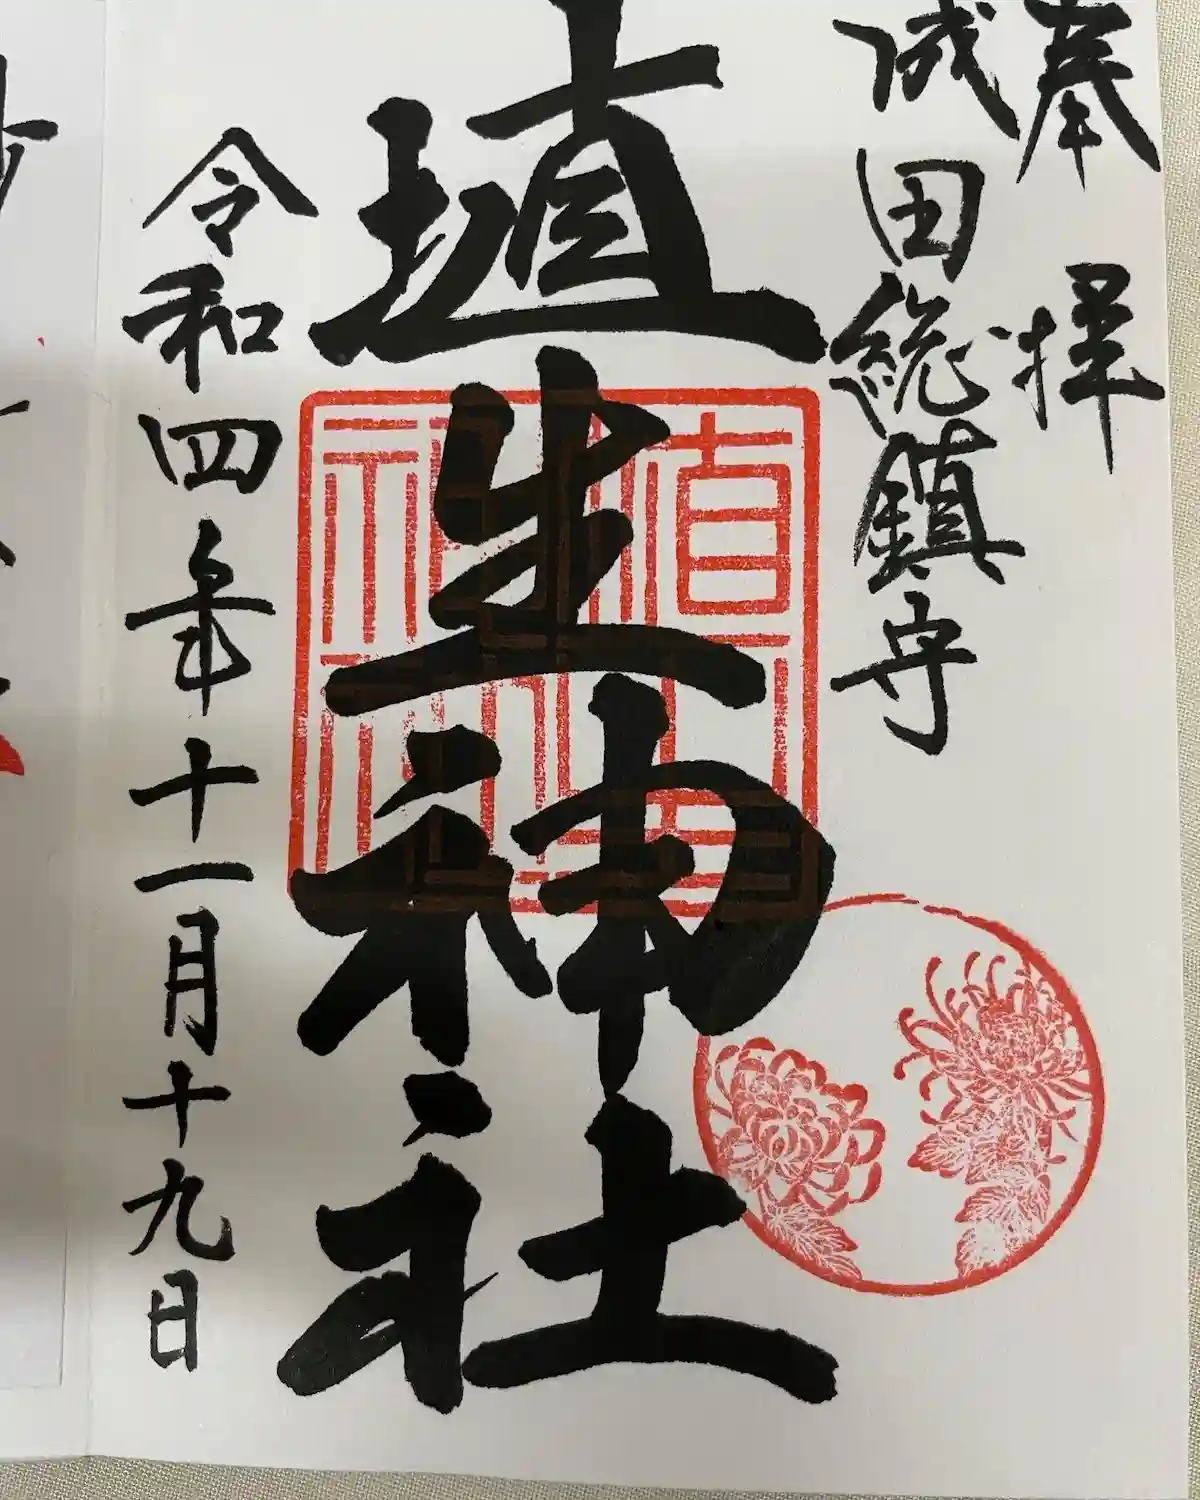 奉拝
成田総鎮守
埴生神社
令和四年十一月十九日